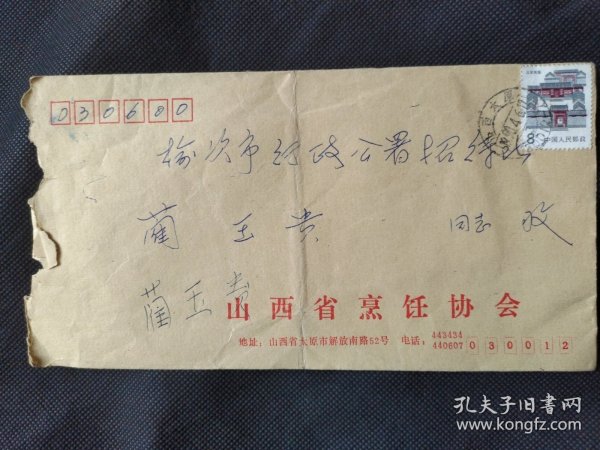 030600
榆次市行政公署招待所
蔺玉贵
同志 收
蔺玉贵
山西省烹饪协会
地址：山西省太原市解放南路52号 电话：443434
440607 030012
8分 中国人民邮政
孔夫子旧书网
www.kongfz.com